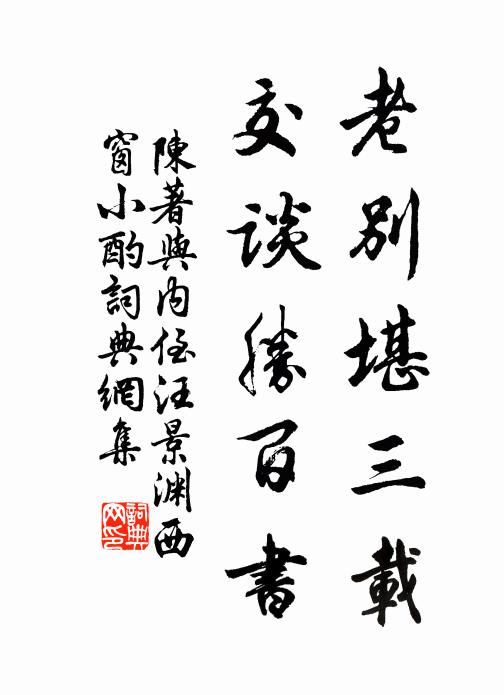 老別堪三載
交談勝百書
陳著與內侄汪景淵西
窗小酌詞典網集
詞典
网印